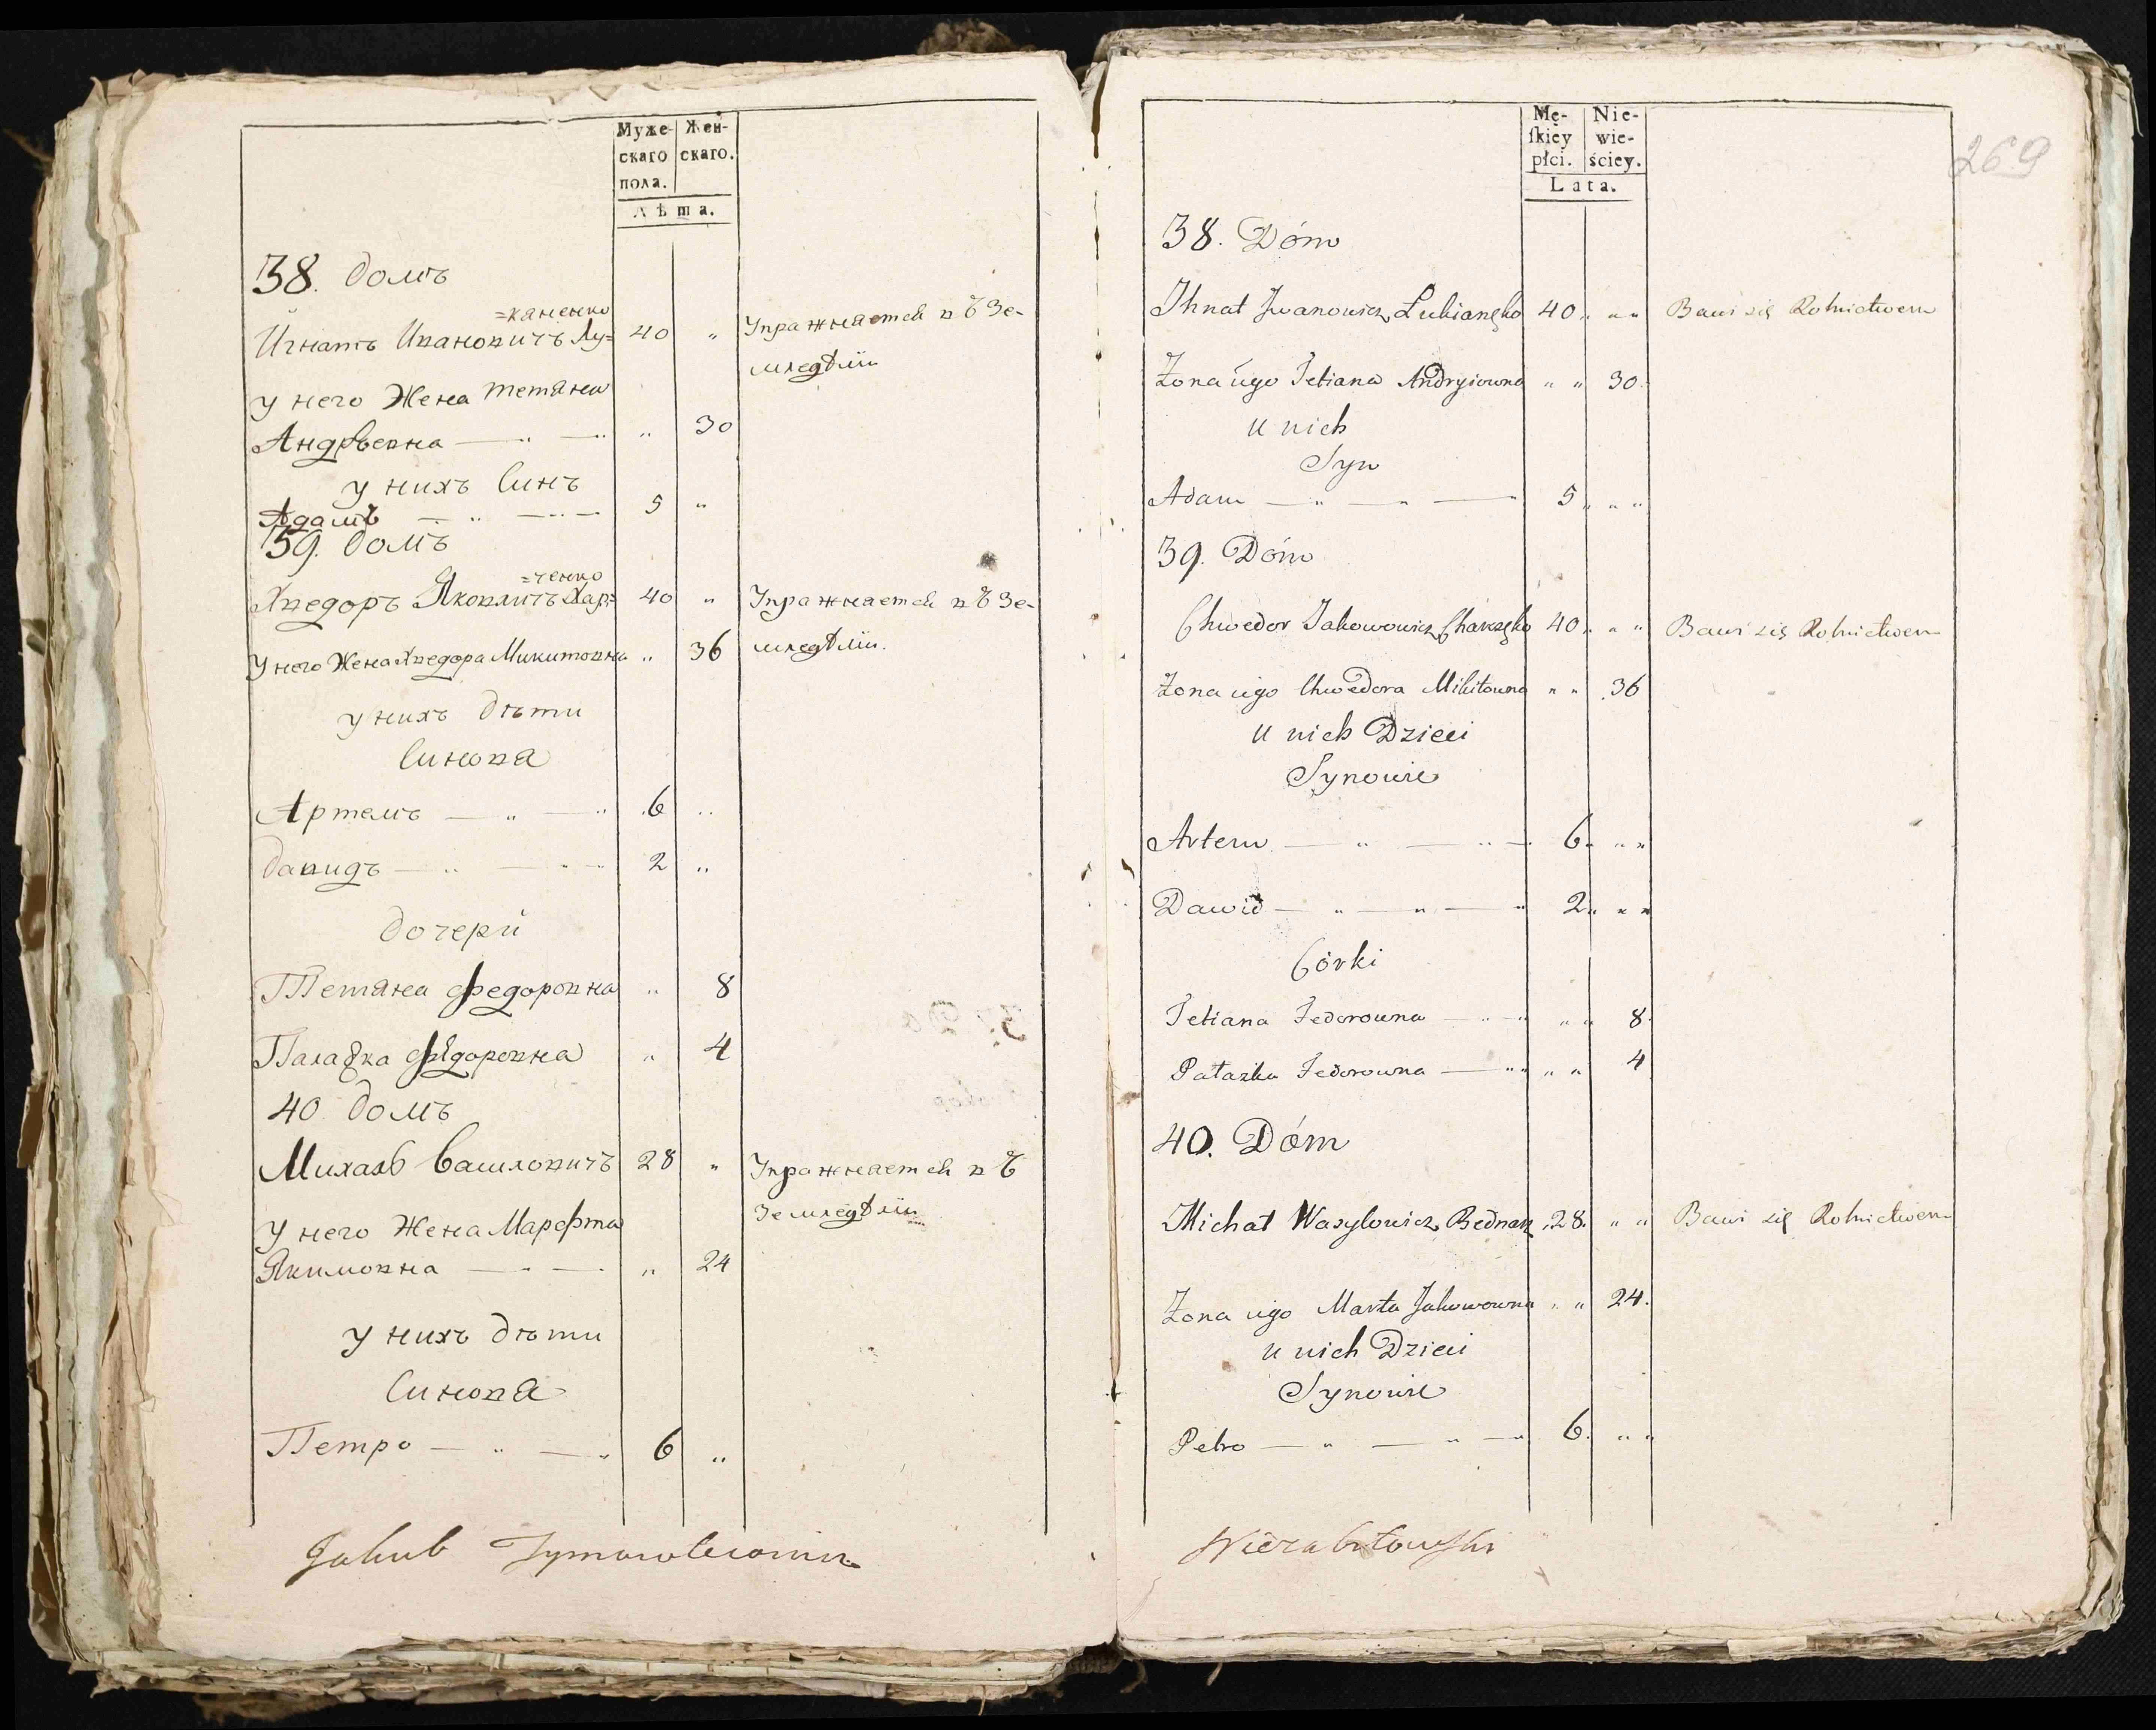 Муже-
скаго
пола.
Жен-
скаго.
Лѣта.
38. домъ
=каненко
Игнатъ Ивановичъ Лу= 40 „ Упражняется въ Зе-
мледѣлiи
у него Жена Тетяна
Андрѣевна — „ — „ „ 30
у нихъ Синъ
Адамъ — „ — „ — 5 „
39. домъ
=ченко
Хведоръ Яковличъ Хар= 40 „ Упражняется въ Зе-
У него Жена Хведора Микитовна „ 36 мледѣлiи.
у нихъ дѣти
Синова
Артемъ — „ — „ 6 „
Давидъ — „ — „ — 2 „
дочери
Тетяна Федоровна „ 8
Палажка Федоровна „ 4
40 домъ
Михаль Василовичъ 28 „ Упражняется въ
Земледѣлiи
у него Жена Марфта
Якимовна — „ — „ 24
у нихъ дѣти
Синова
Петро — „ — „ 6 „
Jakub
269
Mę-
ſkiey
płci.
Nie-
wie-
ściey.
Lata.
38. Dóm
Ihnat Iwanowicz Łukianęko 40 „ „ „ Bawi się Rolnictwem
Żona iego Tetiana Andryiowna „ „ 30.
u nich
Syn
Adam — „ — „ — 5 „ „ „
39. Dóm
Chwedor Jakowowicz Charczęko 40 „ „ „ Bawi się Rolnictwem
Żona iego Chwedora Mikitowna „ „ 36
u nich Dzieci
Synowie
Artem — „ — „ — 6 „ „ „
Dawid — „ — „ — „ 2 „ „ „
Córki
Tetiana Fedorowna — „ — „ „ „ 8.
Pałażka Fedorowna — „ „ „ „ 4
40. Dóm
Michał Wasylowicz Bednarz 28. „ „ Bawi się Rolnictwem
Żona iego Marta Jakowowna „ „ 24.
u nich Dzieci
Synowie
Petro — „ — „ — „ 6. „ „